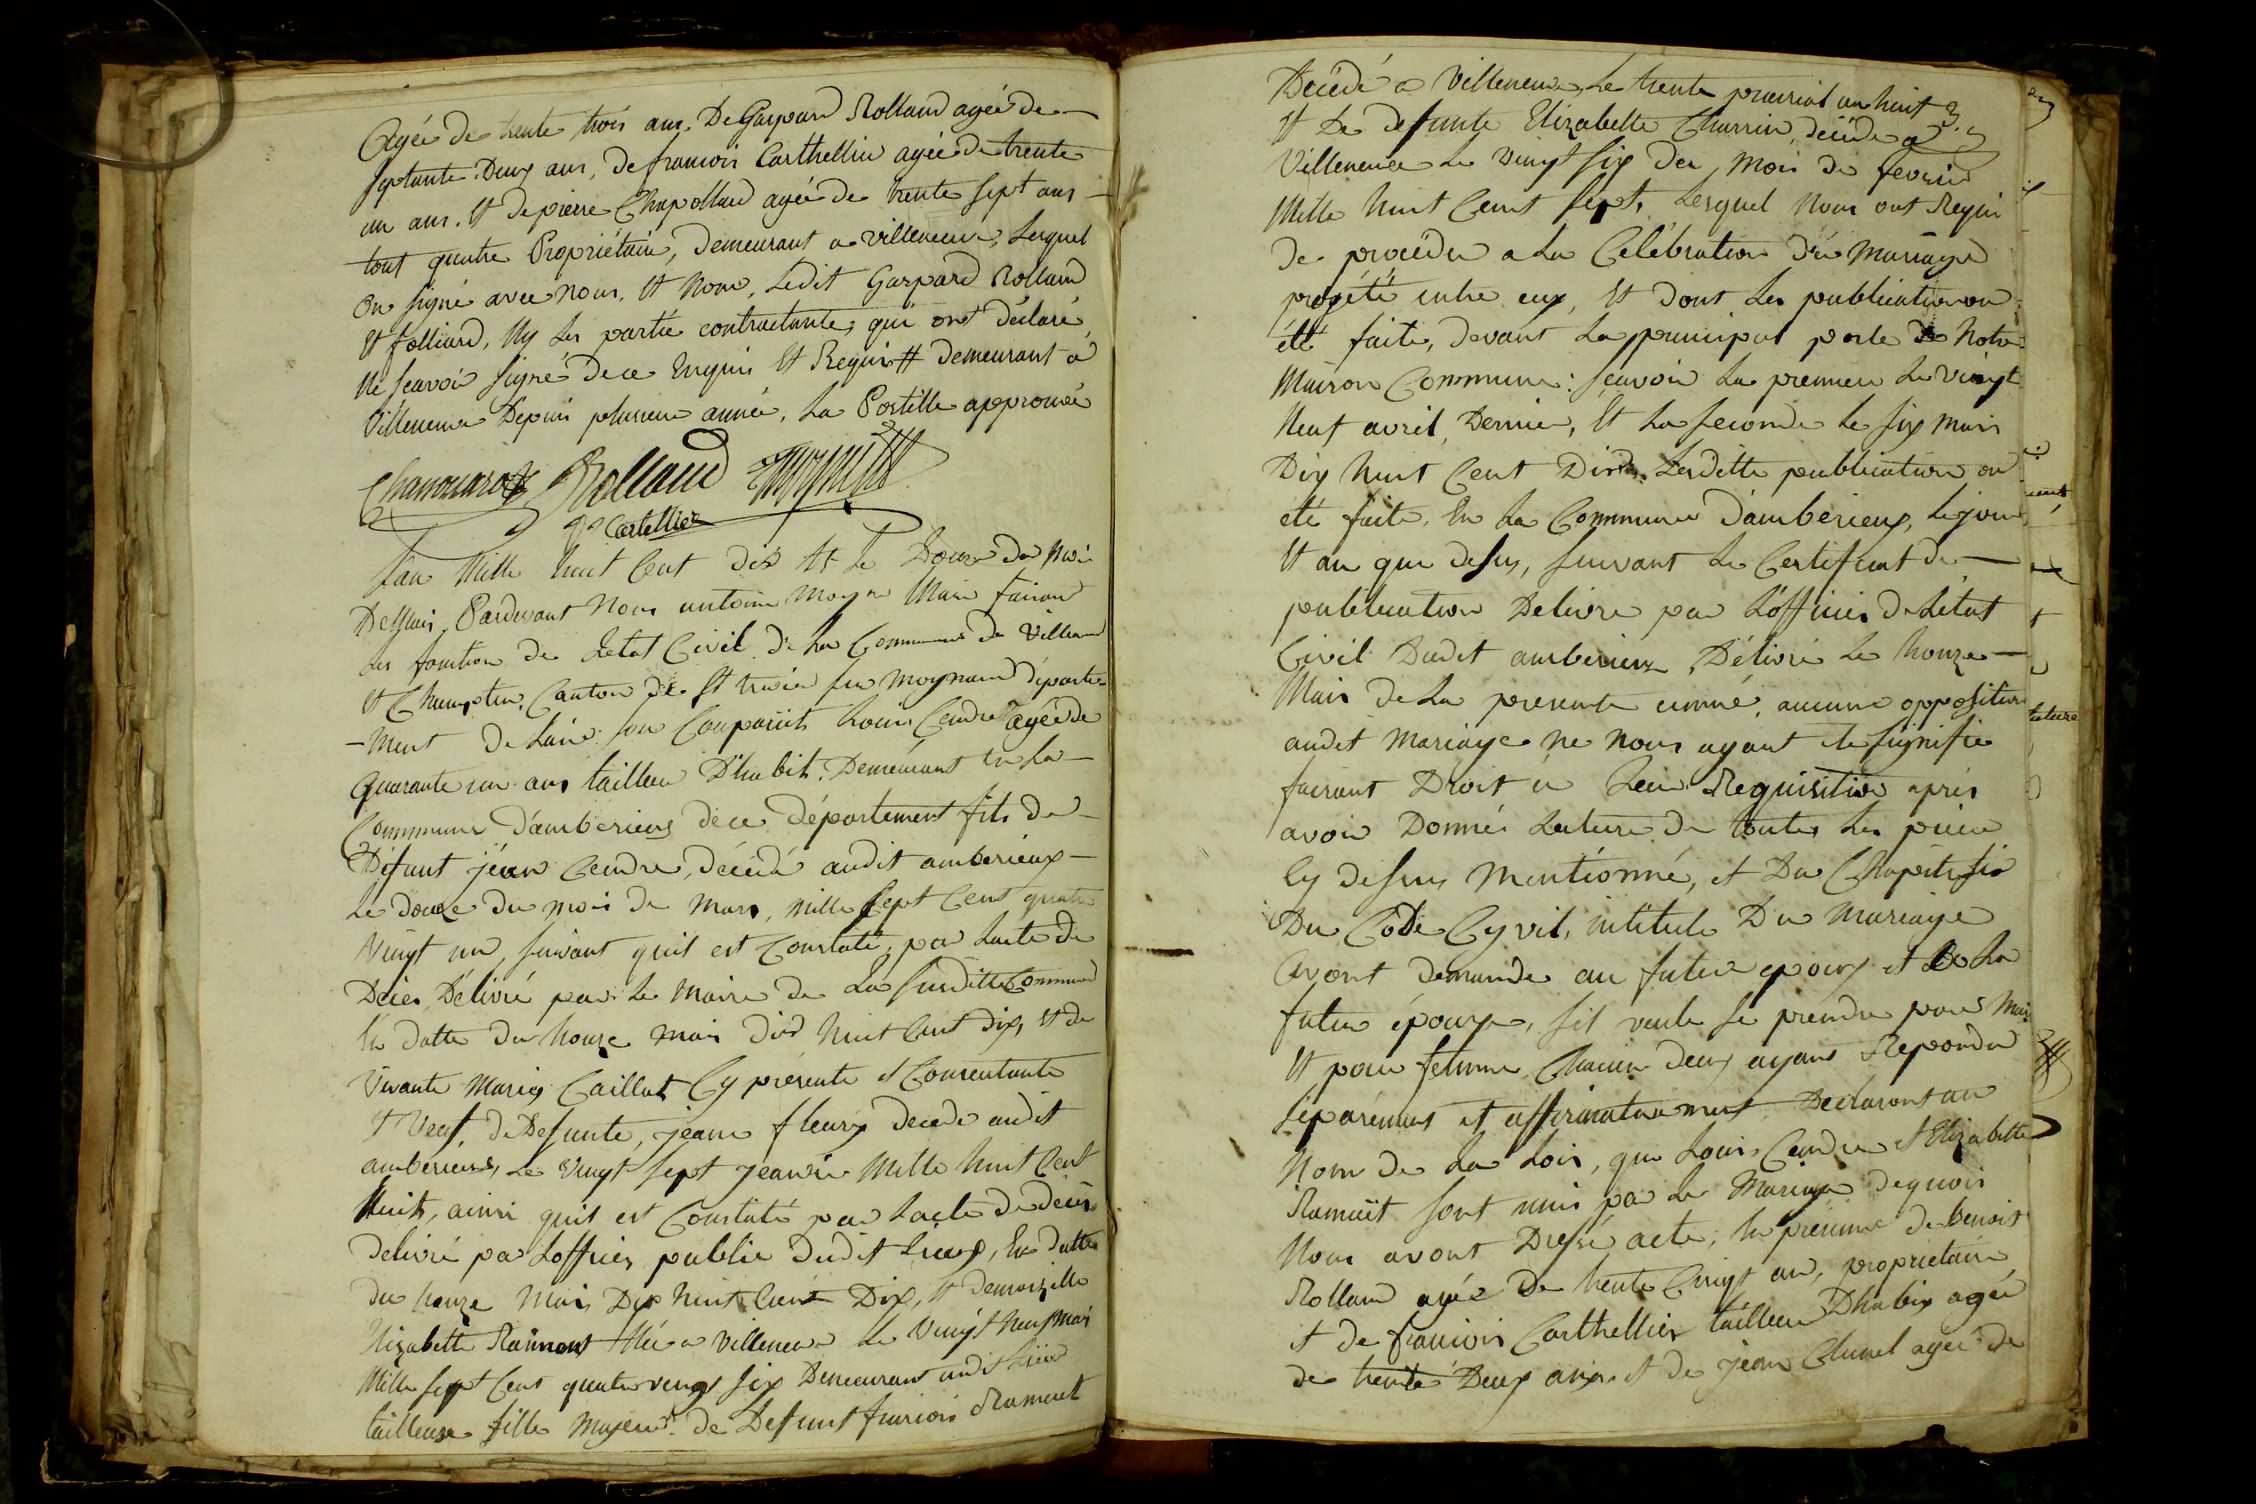 Agée de trente trois ans. De Gaspard Rolland agée de
septante Deux ans, de francois Carthellier agée de trente
un ans. Et de pierre Chapolland agée de trente sept ans
tout quatre Propriétaire, demeurant a villeneuve, Lesquel
On signé avec nous, Et nom, Ledit Gaspard Rolland
Et folliard, Ny les partie contractante, qui ont déclaré,
Ne scavoir signé de ce Enquis Et Requis # demeurant á
Villeneuve Depuis plusieurs année, La Postille approuvé
Rolland
Cartellier
Lan Mille huit Cent dix Et Le Douze du Moi
De Mai, Pardevant Nous antoine Moyne Maire faisant
les fonction de Letat Civil de La Commune de Villeneuve
Et Chaneins, Canton de St trivier sur Moignans départe-
-ment de Lain son Comparüt Louis Cendre agée de
Quarante un ans tailleur D'habits. Demeurant en La
Commune d'amberieux de ce département fils de
Défunt jéan Cendre, décédé audit amberieux
Le douze du mois de Mars, mille sept Cent quatre
Vingt un, suivant quil est Constaté, par Lacte de
Déces, Délivré par Le Maire de La susditte Commune
En datte du honze mai dix huit Cent dix, et de
Vivante Marie Caillat Cy présente et Consentante
Et Veuf, de Defunte, jeane fleury décede audit
amberieux, Le Vingt sept jeanvier Mille huit Cent
Huit, ainsi quil est Constaté par Lacte de déces
delivré par Lofficier public Dudit Lieux, En datte
du honze Mai, Dix huit Cent Dix, Et demoiselle
Elizabette Ramuet Née a villeneuve Le Vingt neuf Mai
Mille sept Cent quatre vengt six Demeurant audit Lieux
tailleuse fille Majeure de Defunt francois Ramuet
Décédé a Villeneuve, Le trente prairial an huit
Et De defunte Elizabette Charrin, décéde a
Villeneuve Le Vingt six du Mois de fevrier
Mille huit Cent Sept, Lesquel Nous ont Requis
de procéder a La Célébration du Mariage
progété entre eux, Et dont Les publication on
été faite, devant La principal porte de Notre
Maison Commune: scavoir La premiere Le vingt
Neuf avril, Dernier, Et La seconde le six Mai
Dix huit Cent Dix. Lesditte publication on
été faite, En La Commune d'amberieux, Le jour
Et an que desus, suivant Le Certificat de
publication Delivré par Lofficier de Létat
Civil Dudit amberieux, Délivré Le honze
Mai de La presente année, aucune opposition
audit Mariage ne Nous ayant ete signifié
faisant Droit á Leur Requisition aprés
avoir Donnée Lecture de toutes Les piece
Cy desus Mentionné, et Du Chapitre six
Du Code Cyvil, intitulé Du Mariage
Avont demandé au futur epoux et De La
future épouze, sil veule se prendre pour Mari
Et pour femme, Chacun deux ayant Repondu
séparément et affirmativement Déclaront au
Nom de La Loi, que Louis Cendre et Elizabette
Ramuët sont unis par Le Mariage dequoi
Nous avont Dressé acte, En présence de benoit
Rolland agée De trente Cinq an, proprietaire,
et de francois Carthellier tailleur Dhabix agée
de trente Deux ans. et de jean Clunel agée de